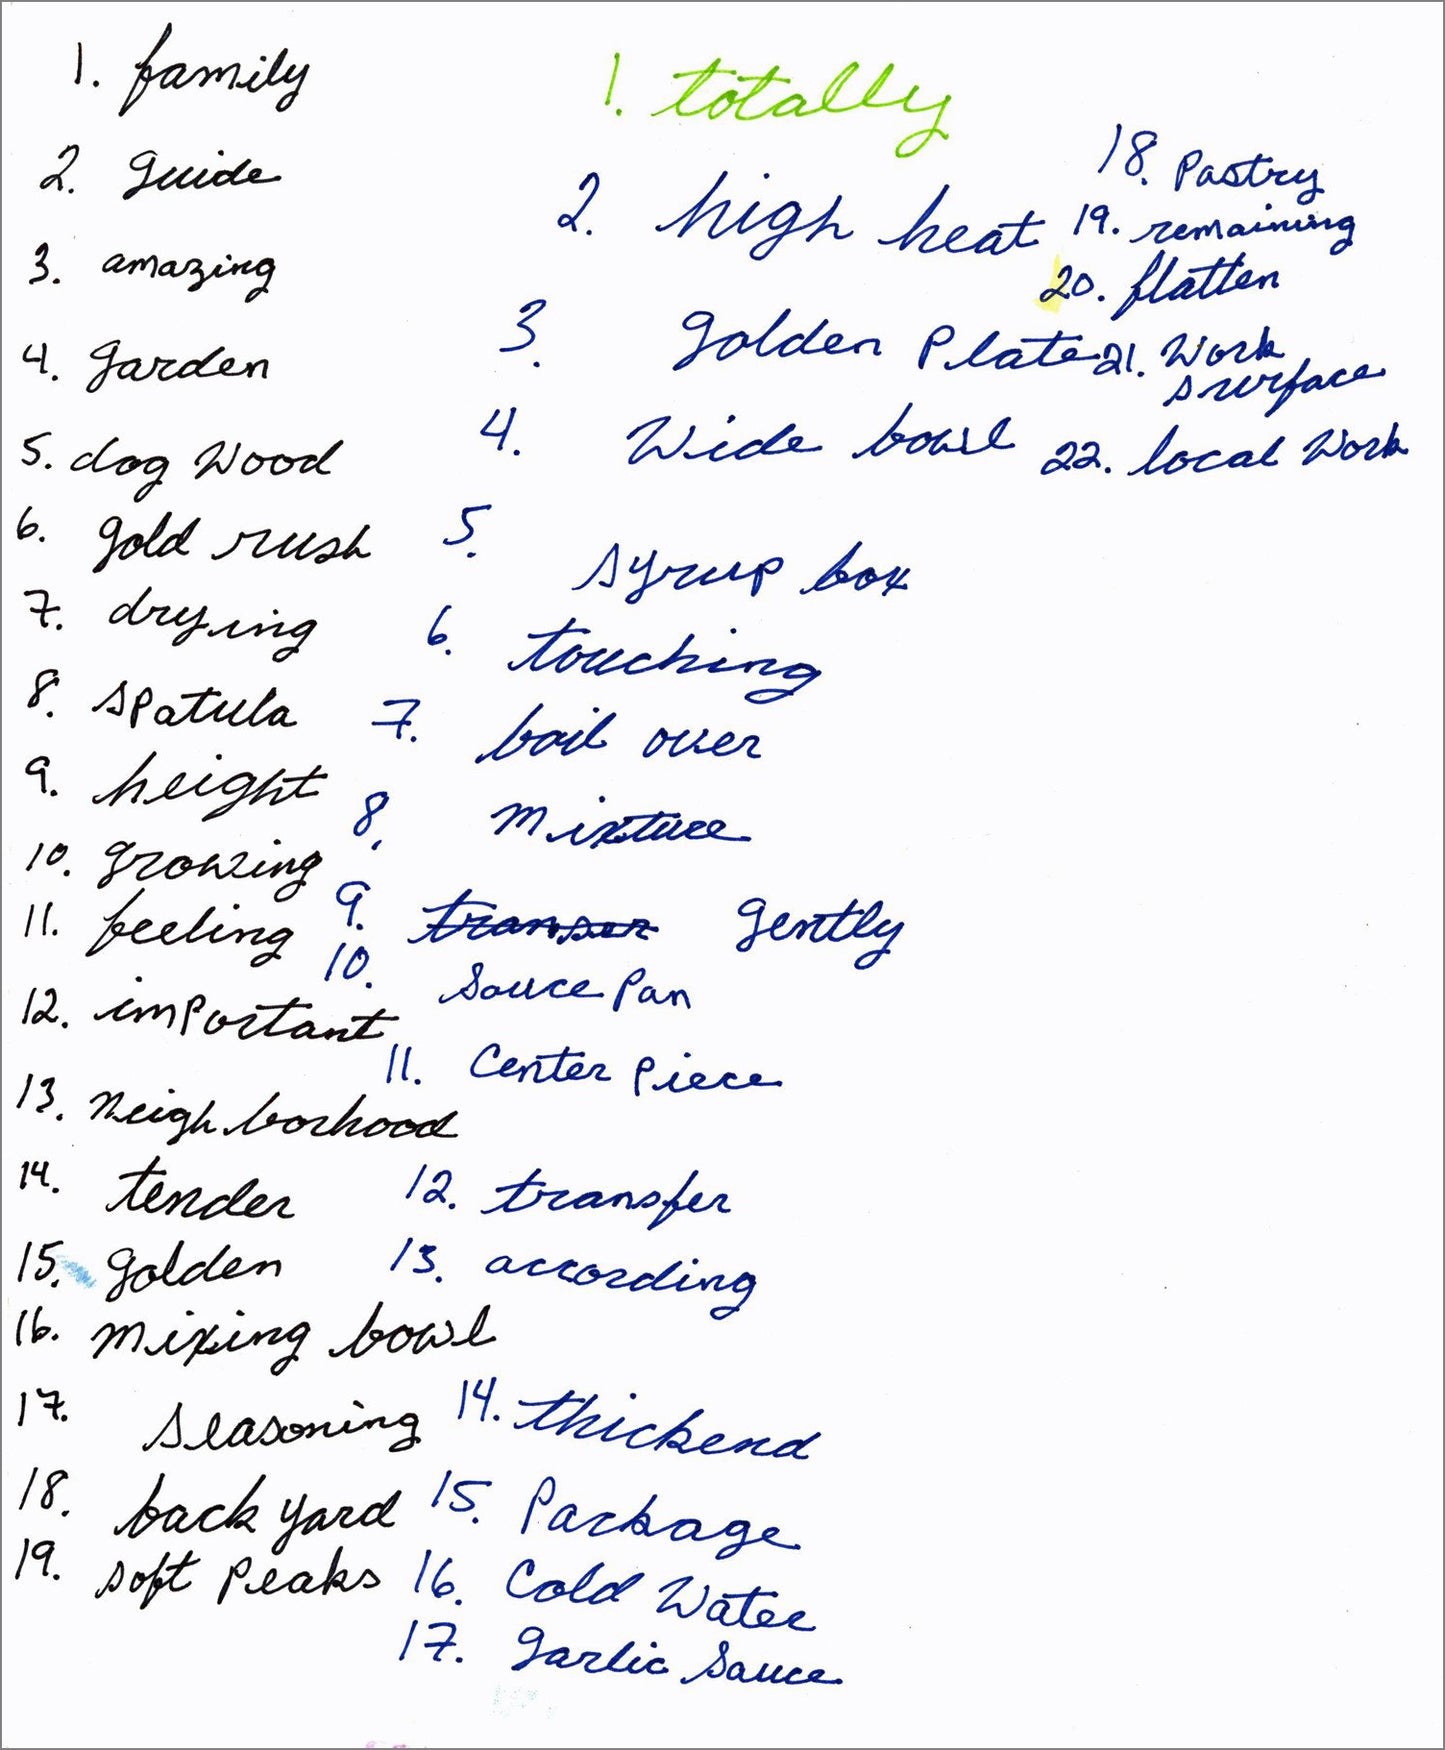 1. family
2. Guide
3. amazing
4. Garden
5. dog Wood
6. gold rush
7. drying
8. spatula
9. height
10. growing
11. feeling
12. important
13. Neighborhood
14. tender
15. golden
16. mixing bowl
17. seasoning
18. back yard
19. soft Peaks
1. totally
2. high heat
3. golden Plate
4. Wide bowl
5. syrup box
6. touching
7. boil over
8. mixture
9. transer Gently
10. Sauce Pan
11. Center Piece
12. transfer
13. according
14. thickend
15. Package
16. Cold Water
17. garlic Sauce
18. Pastry
19. remaining
20. flatten
21. Work
surface
22. local Work